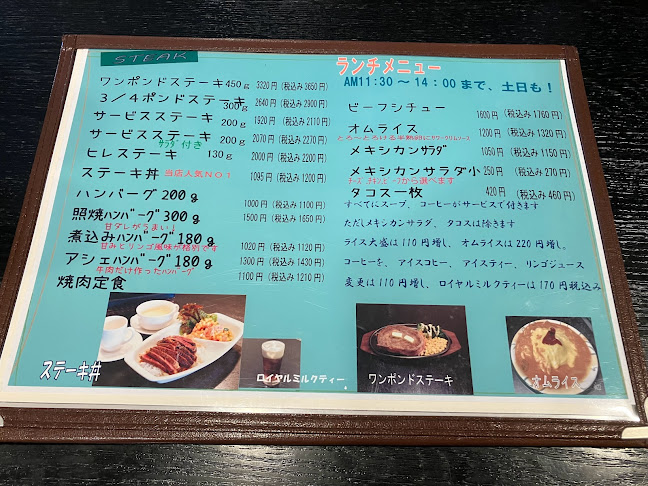 STEAK
ワンポンドステーキ450g 3320円(税込み3650円)
3/4ポンドステーキ 300g 2640円(税込み2900円)
サービスステーキ 200g 1920円(税込み2110円)
サービスステーキ 200g 2070円(税込み2270円)
サラダ付き
ヒレステーキ 130g 2000円(税込み2200円)
ステーキ丼 当店人気NO1 1095円(税込み1200円)
ハンバーグ200g 1000円(税込み1100円)
照焼ハンバーグ300g 1500円(税込み1650円)
甘ダレがうまい!
煮込みハンバーグ180g 1020円(税込み1120円)
甘みとリンゴ風味が格別です
アシェハンバーグ180g 1300円(税込み1430円)
牛肉だけ作ったハンバーグ
焼肉定食 1100円(税込み1210円)
ランチメニュー
AM11:30~14:00まで、土日も!
ビーフシチュー 1600円(税込み1760円)
オムライス 1200円(税込み1320円)
とろ~とろける半熟卵&サワークリームソース
メキシカンサラダ 1050円(税込み1150円)
メキシカンサラダ小 250円(税込み270円)
チーズ、チキン、ビーフから選べます
タコス一枚 420円(税込み460円)
すべてにスープ、コーヒーがサービスで付きます
ただしメキシカンサラダ、タコスは除きます
ライス大盛は110円増し、オムライスは220円増し。
コーヒーを、アイスコヒー、アイスティー、リンゴジュース
変更は110円増し、ロイヤルミルクティーは170円税込み
ステーキ丼
ロイヤルミルクティー
ワンポンドステーキ
オムライス